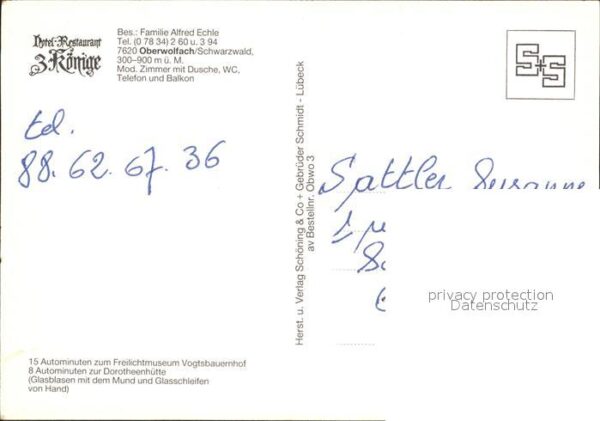 Hotel-Restaurant
3 Könige
Bes.: Familie Alfred Echle
Tel. (0 78 34) 2 60 u. 3 94
7620 Oberwolfach/Schwarzwald,
300–900 m ü. M.
Mod. Zimmer mit Dusche, WC,
Telefon und Balkon
S+S
tel.
88. 62. 67. 36
Herst. u. Verlag Schöning & Co + Gebrüder Schmidt - Lübeck
av Bestellnr. Obwo 3
Sattler Susanne
1
privacy protection
Datenschutz
15 Autominuten zum Freilichtmuseum Vogtsbauernhof
8 Autominuten zur Dorotheenhütte
(Glasblasen mit dem Mund und Glasschleifen
von Hand)